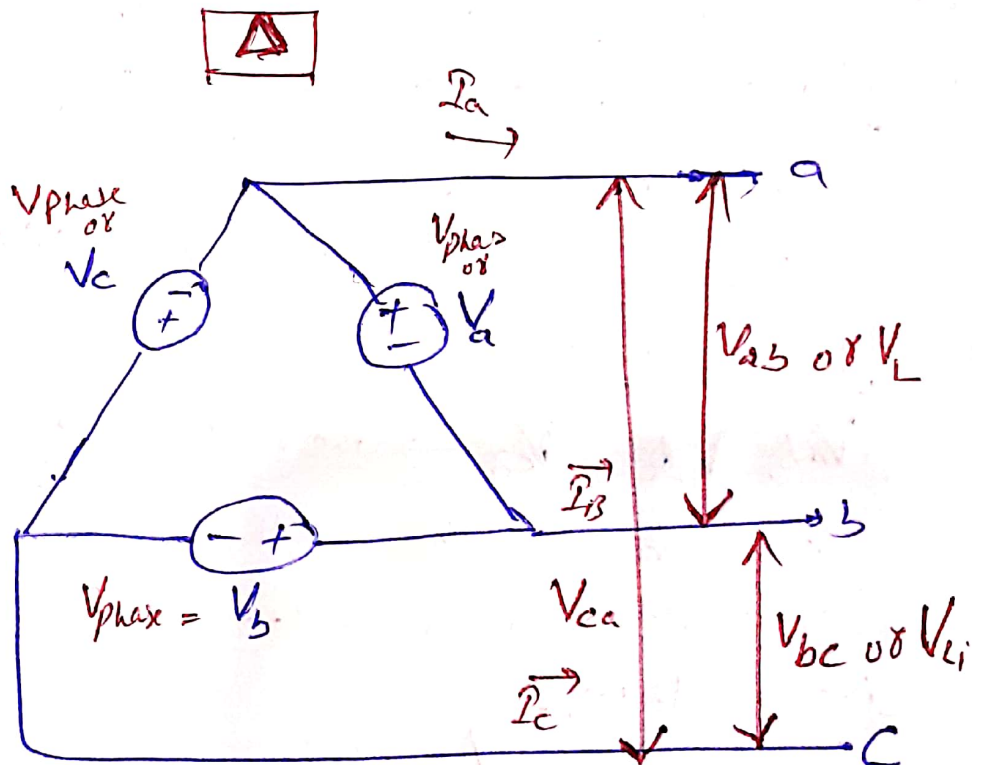 Δ
Ia
a
Vphase
or
Vc
- +
Vphas
or
Va
+ -
Vab or VL
IB
b
- +
Vphase = Vb
Vca
Vbc or VLi
Ic
C